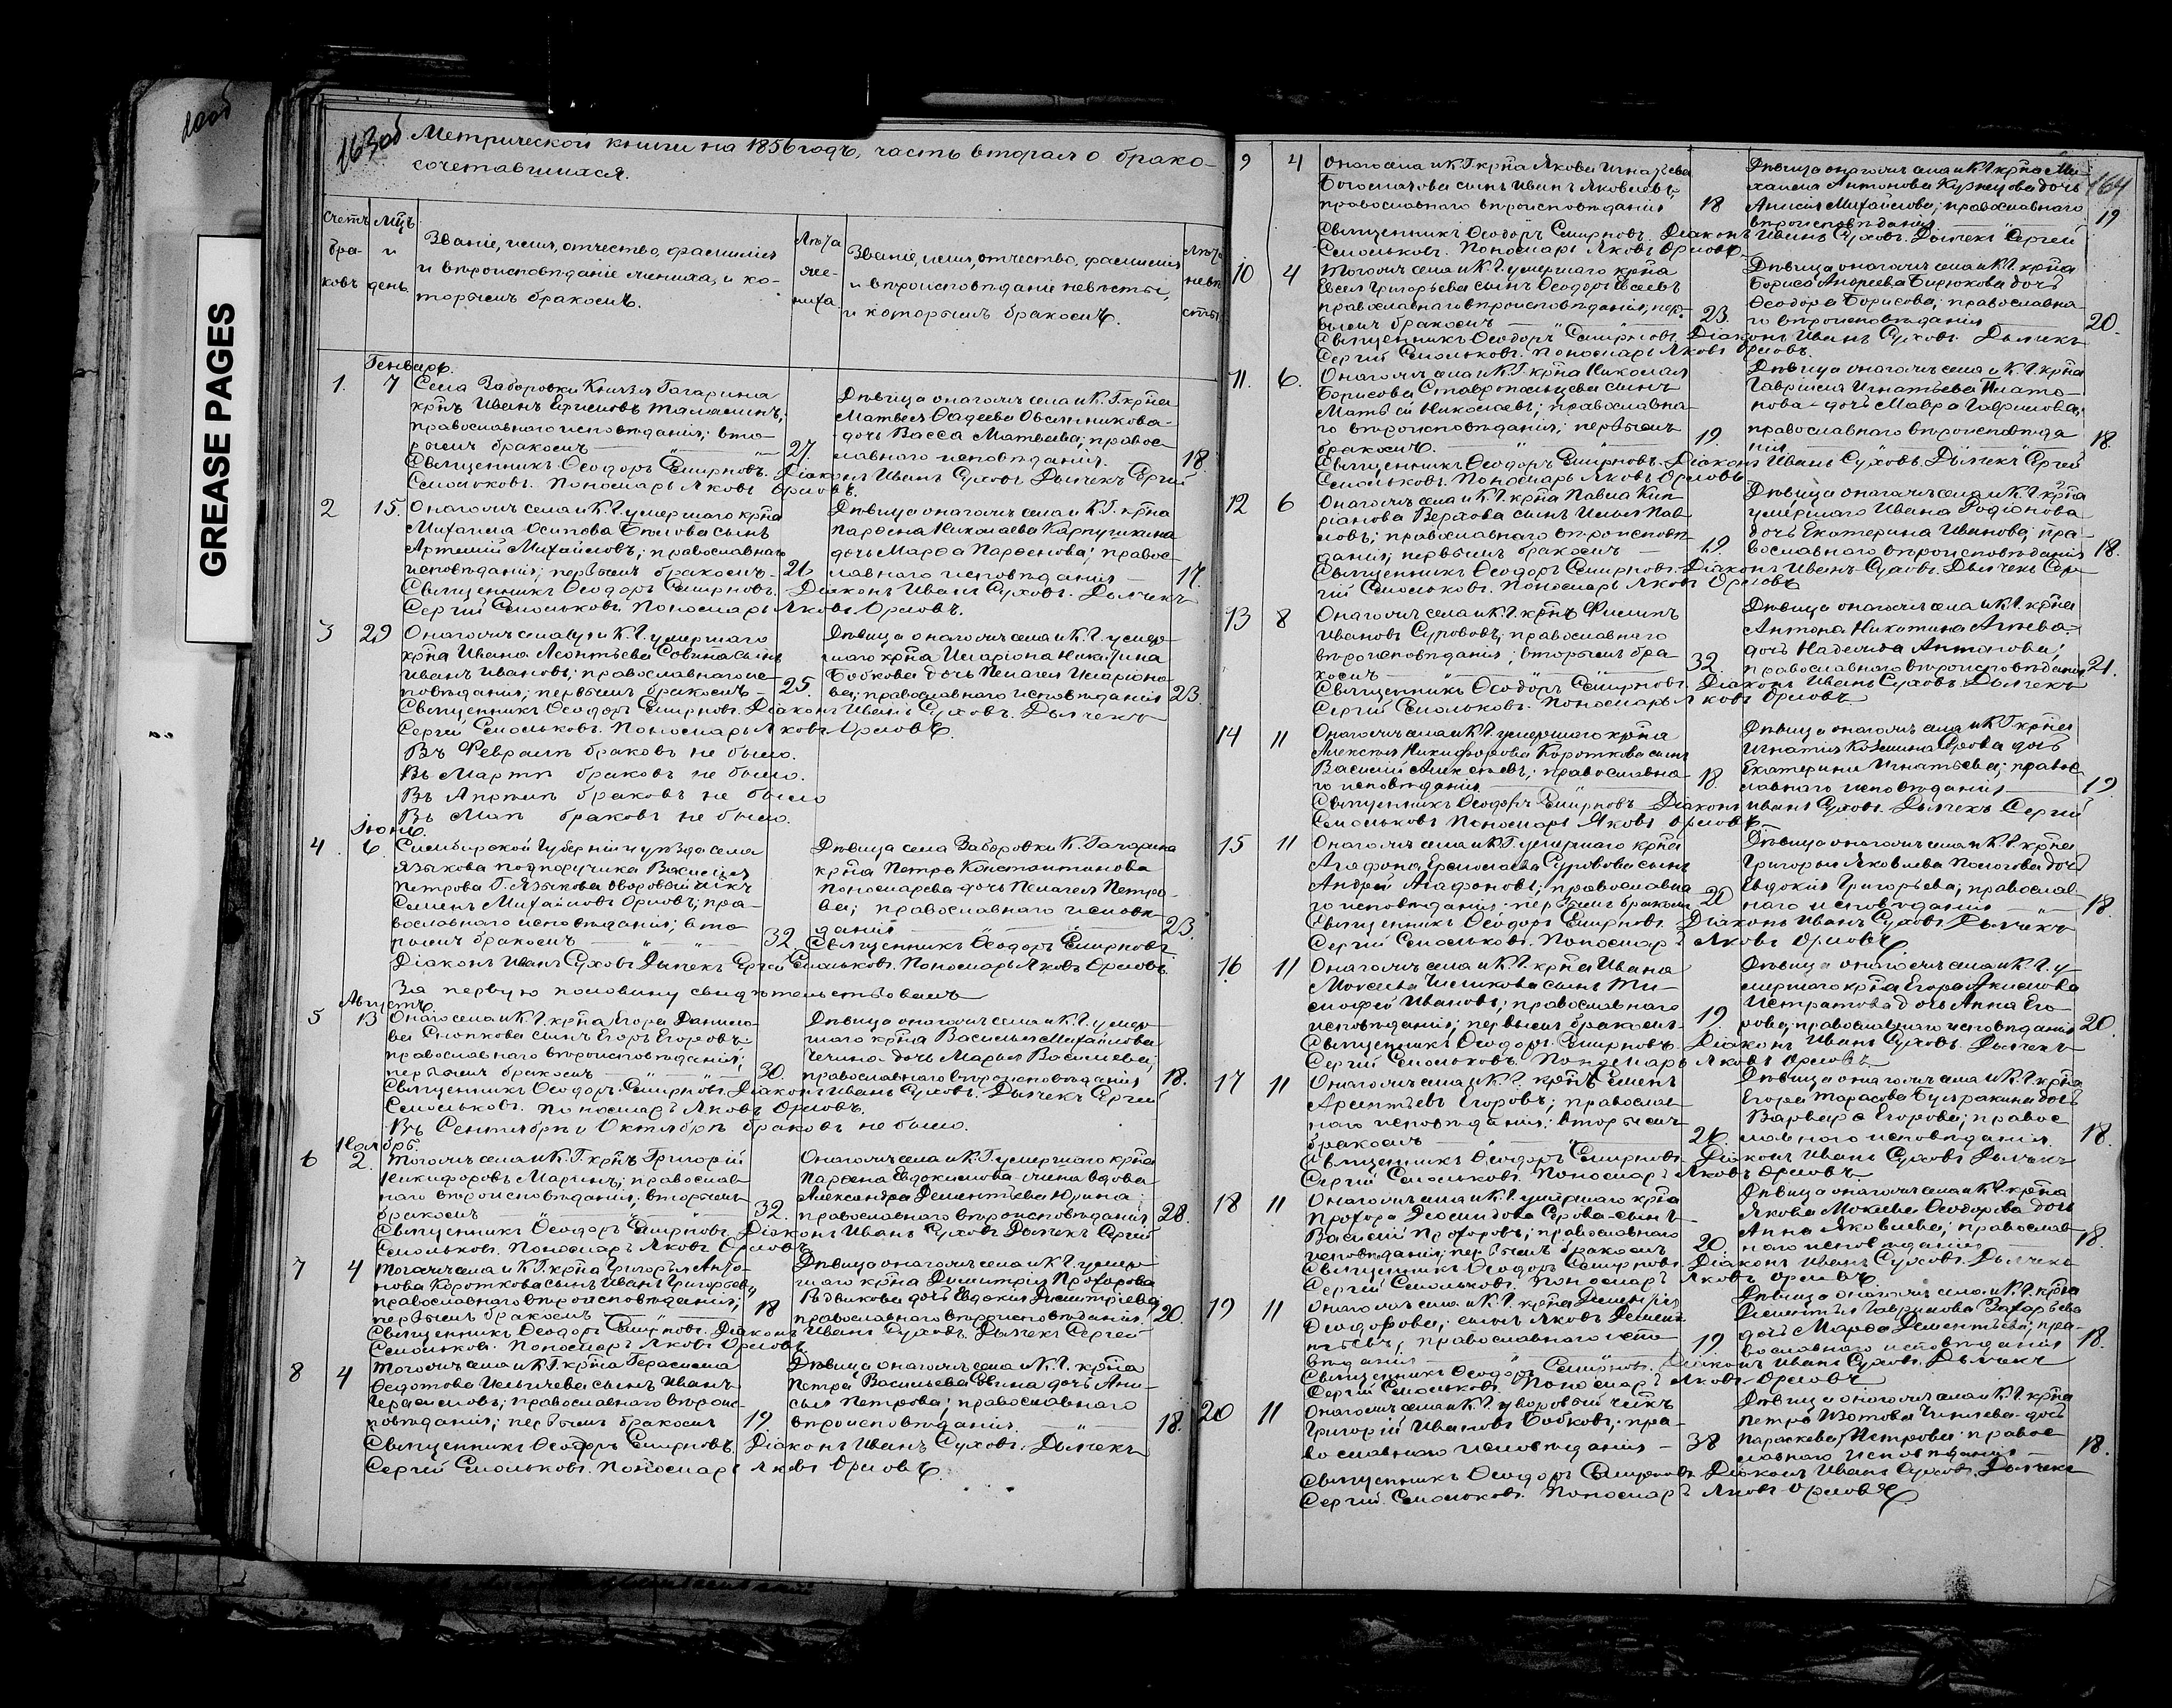 GREASE PAGES
163об
Метрической книги на 1856 годъ, часть вторая о брако-
сочетавшихся.
Счетъ бра- ковъ
Мцъ и день
Званіе, имя, отчество, фамилія
и вѣроисповѣданіе жениха, и ко-
торымъ бракомъ.
Лѣта же- ниха
Званіе, имя, отчество, фамилія
и вѣроисповѣданіе невѣсты,
и которымъ бракомъ.
Лѣта невѣ сты
Генварь.
1. 7
Села Заборовки Князя Гагарина
крнъ Иванъ Ефимовъ
православнаго исповѣданія; вто-
рымъ бракомъ 27.
Дѣвица онагожъ села и К. Г. крна
Матвея Фадеева Овсянникова
дочь Васса Матвеева; правос-
лавнаго исповѣданія. 18.
Священникъ Ѳеодоръ Смирновъ. Діаконъ Иванъ Суховъ Дьячекъ Сергій
Смольковъ. Пономарь Яковъ Орловъ.
2 15.
Онагожъ села и К. Г. умершаго крна
Михаила Осипова сынъ
Артемій Михайловъ; православнаго
исповѣданія; первымъ бракомъ
Дѣвица онагожъ села и К. Г. крна
Парѳена Николаева Карпушкина
дочь Марѳа Парѳенова; правос-
лавнаго исповѣданія 17.
Священникъ Ѳеодоръ Смирновъ. Діаконъ Иванъ Суховъ. Дьячекъ
Сергій Смольковъ. Пономарь Яковъ Орловъ.
3 29
Онагожъ села и К. Г. умершаго
крна Ивана Леонтьева Совина сынъ
Иванъ Ивановъ; православнаго ис-
повѣданія; первымъ бракомъ 25.
Дѣвица онагожъ села и К. Г. умер-
шаго крна Иларіона Никитина
Бобкова дочь Пелагея Иларіоно-
ва; православнаго исповѣданія 23.
Священникъ Ѳеодоръ Смирновъ. Діаконъ Иванъ Суховъ. Дьячекъ
Сергій Смольковъ. Пономарь Яковъ Орловъ.
Въ Февралѣ браковъ не было.
Въ Мартѣ браковъ не было.
Въ Апрѣлѣ браковъ не было
Въ Маѣ браковъ не было.
Іюнь.
4 6.
Симбирской Губерніи и уѣзда села
Языкова подпоручика Василія
Петрова Г. Языкова дворовый
Семенъ Михайловъ Орловъ; пра-
вославнаго исповѣданія; вто-
рымъ бракомъ 32.
Дѣвица села Заборовки К. Гагарина
крна Петра Константинова
Пономарева дочь Пелагея Петро-
ва; православнаго исповѣ-
данія 23.
Священникъ Ѳеодоръ Смирновъ
Діаконъ Иванъ Суховъ Дьячекъ Сергій Смольковъ. Пономарь Яковъ Орловъ.
За первую половину свидѣтельствовалъ
Августъ
5 13
Онаго села и К. Г. крна Егора Данило-
ва сынъ Егоръ Егоровъ
православнаго вѣроисповѣданія;
первымъ бракомъ 30.
Дѣвица онагожъ села и К. Г. умер-
шаго крна Василья Михайлова
дочь Марья Васильева;
православнаго вѣроисповѣданія 18.
Священникъ Ѳеодоръ Смирновъ. Діаконъ Иванъ Суховъ. Дьячекъ Сергій
Смольковъ. Пономарь Яковъ Орловъ.
Въ Сентябрѣ и Октябрѣ браковъ не было.
Ноябрь.
6 2.
Тогожъ села и К. Г. крнъ Григорій
Никифоровъ Маринъ; православ-
наго вѣроисповѣданія; вторымъ
бракомъ 32.
Онагожъ села и К. Г. умершаго крна
Парѳена Евдокимова жена вдова
Александра Дементьева Юрина
православнаго вѣроисповѣданія 28.
Священникъ Ѳеодоръ Смирновъ Діаконъ Иванъ Суховъ Дьячекъ Сергій
Смольковъ. Пономарь Яковъ Орловъ
7 4
Тогожъ села и К. Г. крна Григорья Анто-
нова Короткова сынъ Иванъ Григорьев
православнаго вѣроисповѣданія;
первымъ бракомъ 18
Дѣвица онагожъ села и К. Г. умер-
шаго крна Димитрія Прохорова
дочь Евдокия Димитріева
православнаго вѣроисповѣданія. 20.
Священникъ Ѳеодоръ Смирновъ. Діаконъ Иванъ Суховъ. Дьячекъ Сергей
Смольковъ. Пономарь Яковъ Орловъ
8 4
Тогожъ села и К. Г. крна Герасима
Ѳедотова Ильичева сынъ Иванъ
Герасимовъ; православнаго вѣроис-
повѣданія; первымъ бракомъ 19.
Дѣвица онагожъ села и К. Г. крна
Петра Васильева дочь Ани-
сья Петрова; православнаго
вѣроисповѣданія 18.
Священникъ Ѳеодоръ Смирновъ. Діаконъ Иванъ Суховъ. Дьячекъ
Сергій Смольковъ. Пономарь Яковъ Орловъ
164
9 4
Онаго села и К. Г. крна Якова Игнатьева
Богомазова сынъ Иванъ Яковлевъ
православнаго вѣроисповѣданія 18
Дѣвица онагожъ села и К. Г. крна Ми-
хаила Антонова Кузнецова дочь
Анисия Михайлова; православнаго
вѣроисповѣданія 19
Священникъ Ѳеодоръ Смирновъ. Діаконъ Иванъ Суховъ. Дьячекъ Сергей
Смольковъ. Пономарь Яковъ Орловъ.
10 4
Тогожъ села и К. Г. умершаго крна
Григорьева сынъ Ѳеодоръ
православнаго вѣроисповѣданія; пер-
вымъ бракомъ 23.
Дѣвица онагожъ села и К. Г. крна
Бориса Андреева Бирюкова дочь
Ѳеодора Борисова; православна-
го вѣроисповѣданія 20.
Священникъ Ѳеодоръ Смирновъ. Діаконъ Иванъ Суховъ. Дьячекъ
Сергій Смольковъ. Пономарь Яковъ Орловъ.
11. 6.
Онагожъ села и К. Г. крна Николая
Борисова Ставропольцева сынъ
Матвѣй Николаевъ; православна-
го вѣроисповѣданія; первымъ
бракомъ. 19.
Дѣвица онагожъ села и К. Г. крна
Гавриила Игнатьева Плато-
нова дочь Мавра Гаврилова;
православнаго вѣроисповѣда
нія 18.
Священникъ Ѳеодоръ Смирновъ. Діаконъ Иванъ Суховъ. Дьячекъ Сергій
Смольковъ. Пономарь Яковъ Орловъ
12 6
Онагожъ села и К. Г. крна Павла Кип-
ріанова Верхова сынъ Илья Пав-
ловъ; православнаго вѣроисповѣ-
данія; первымъ бракомъ 19.
Дѣвица онагожъ села и К. Г. крна
умершаго Ивана Родіонова
дочь Екатерина Иванова; пра-
вославнаго вѣроисповѣданія 18.
Священникъ Ѳеодоръ Смирновъ. Діаконъ Иванъ Суховъ. Дьячекъ Сер-
гій Смольковъ. Пономарь Яковъ Орловъ
13 8
Онагожъ села и К. Г. крнъ Филипъ
Ивановъ Сурововъ; православнаго
вѣроисповѣданія; вторымъ бра-
комъ 32.
Дѣвица онагожъ села и К. Г. крна
Антона Никитина Агѣева
дочь Надежда Антонова;
православнаго вѣроисповѣданія 21.
Священникъ Ѳеодоръ Смирновъ. Діаконъ Иванъ Суховъ. Дьячекъ
Сергій Смольковъ. Пономарь Яковъ Орловъ
14 11
Онагожъ села и К. Г. умершаго крна
Алексѣя Никифорова Короткова сынъ
Василій Алексѣевъ; православна-
го исповѣданія 18.
Дѣвица онагожъ села и К. Г. крна
Игнатія дочь
Екатерина Игнатьева; правос-
лавнаго исповѣданія 19.
Священникъ Ѳеодоръ Смирновъ Діаконъ Иванъ Суховъ. Дьячекъ Сергій
Смольковъ Пономарь Яковъ Орловъ
15 11
Онагожъ села и К. Г. умершаго крна
Агафона Ермолаева Суровова сынъ
Андрей Агафоновъ; православна
го исповѣданія первымъ бракомъ 20
Дѣвица онагожъ села и К. Г. крна
Григорья Яковлева дочь
Евдокия Григорьева; православ-
наго исповѣданія 18.
Священникъ Ѳеодоръ Смирновъ. Діаконъ Иванъ Суховъ. Дьячекъ
Сергій Смольковъ. Пономарь Яковъ Орловъ
16 11
Онагожъ села и К. Г. крна Ивана
Мокеева Чижикова сынъ Ти-
мофей Ивановъ; православнаго
исповѣданія; первымъ бракомъ 19.
Дѣвица онагожъ села и К. Г. у-
мершаго крна Егора Акимова
Истратова дочь Анна Его-
рова; православнаго исповѣданія 20.
Священникъ Ѳеодоръ Смирновъ. Діаконъ Иванъ Суховъ. Дьячекъ
Сергій Смольковъ Пономарь Яковъ Орловъ
17 11
Онагожъ села и К. Г. крнъ Семенъ
Арсентьевъ Егоровъ; православ-
наго исповѣданія: вторымъ
бракомъ 26.
Дѣвица онагожъ села и К. Г. крна
Егора Тарасова Булракина дочь
Варвара Егорова; правос
лавнаго исповѣданія. 18.
Священникъ Ѳеодоръ Смирновъ Діаконъ Иванъ Суховъ Дьячекъ
Сергій Смольковъ. Пономарь Яковъ Орловъ
18 11
Онагожъ села и К. Г. умершаго крна
Прохора Серова сынъ
Василій Прохоровъ; православнаго
исповѣданія; первымъ бракомъ 20.
Дѣвица онагожъ села и К. Г. крна
Якова Мокеева Ѳеодорова дочь
Анна Яковлева; православ-
наго исповѣданія 18.
Священникъ Ѳеодоръ Смирновъ Діаконъ Иванъ Суховъ. Дьячекъ
Сергій Смольковъ. Пономарь Яковъ Орловъ
19 11
Онагожъ села и К. Г. крна Дементія
сынъ Яковъ Демен-
тьевъ; православнаго испо-
вѣданія 19.
Дѣвица онагожъ села и К. Г. крна
Дементья Гаврилова Захарьева
дочь Марѳа Дементьева; пра-
вославнаго исповѣданія 18.
Священникъ Ѳеодоръ Смирновъ. Діаконъ Иванъ Суховъ. Дьячекъ
Сергій Смольковъ. Пономарь Яковъ Орловъ
20 11
Онагожъ села и К. Г. дворовый
Григорій Ивановъ Бобковъ; пра-
вославнаго исповѣданія 38
Дѣвица онагожъ села и К. Г. крна
Петра Изотова дочь
Параскева Петрова правос
лавнаго исповѣданія 18.
Священникъ Ѳеодоръ Смирновъ. Діаконъ Иванъ Суховъ. Дьячекъ
Сергій Смольковъ. Пономарь Яковъ Орловъ